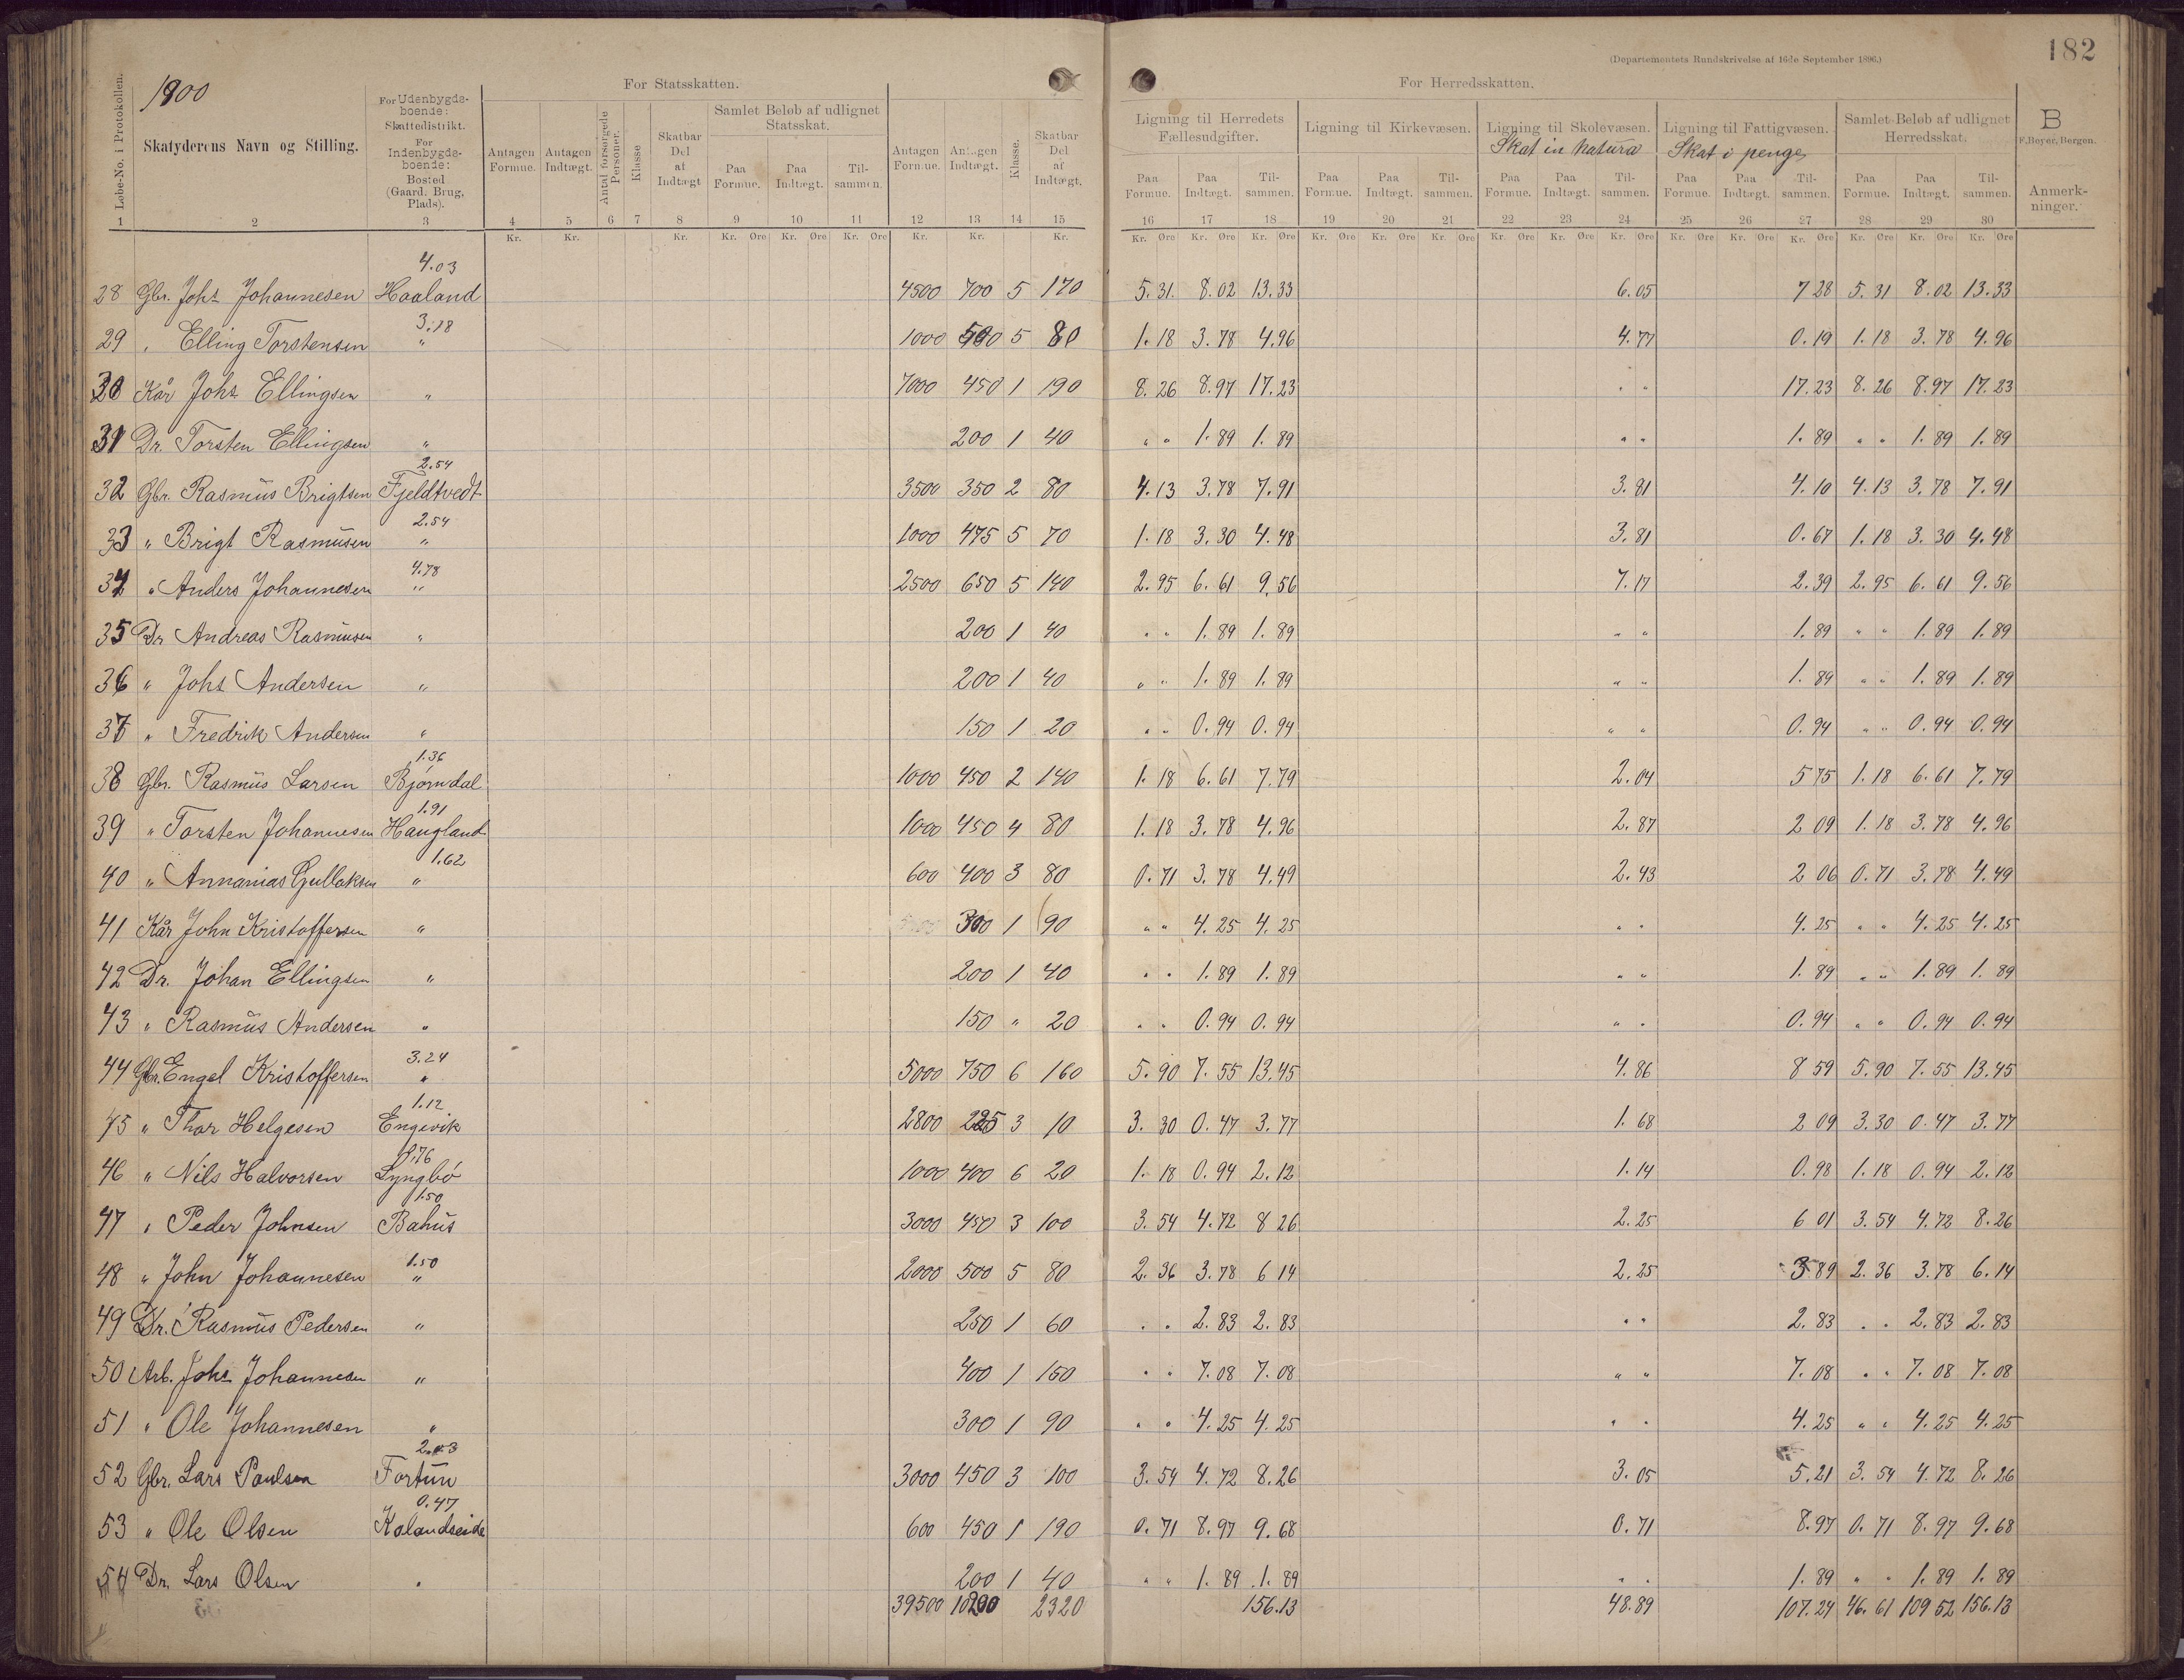 182
(Departementets Rundskrivelse af 16de September 1896.)
1900
For Statsskatten.
For Herredsskatten.
B
F. Beyer, Bergen.
Løbe-No. i Protokollen.
Skatyderens Navn og Stilling.
For Udenbygds-boende: Skattedistrikt. For Indenbygds-boende: Bosted (Gaard. Brug, Plads).
Antagen Formue.
Antagen Indtægt.
Antal forsørgede Personer.
Klasse
Skatbar Del af Indtægt
Samlet Beløb af udlignet Statsskat.
Paa Formue. Paa Indtægt. Til-sammen.
Antagen Formue.
Antagen Indtægt.
Klasse.
Skatbar Del af Indtægt.
Ligning til Herredets Fællesudgifter.
Paa Formue. Paa Indtægt. Til-sammen.
Ligning til Kirkevæsen.
Paa Formue. Paa Indtægt. Til-sammen.
Ligning til Skolevæsen.
Skat in natura
Paa Formue. Paa Indtægt. Til-sammen.
Ligning til Fattigvæsen.
Skat i penge
Paa Formue. Paa Indtægt. Til-sammen.
Samlet Beløb af udlignet Herredsskat.
Paa Formue. Paa Indtægt. Til-sammen.
Anmerk-ninger.
1 2 3 4 5 6 7 8 9 10 11 12 13 14 15 16 17 18 19 20 21 22 23 24 25 26 27 28 29 30
Kr. Kr. Kr. Kr. Øre Kr. Øre Kr. Øre Kr. Kr. Kr. Kr. Øre Kr. Øre Kr. Øre Kr. Øre Kr. Øre Kr. Øre Kr. Øre Kr. Øre Kr. Øre Kr. Øre Kr. Øre Kr. Øre Kr. Øre Kr. Øre Kr. Øre
4.03
28 Gbr. Johs Johannesen Haaland 4500 700 5 170 5.31 8.02 13.33 6.05 7 28 5.31 8.02 13.33
3.18
29 " Elling Torstensen " 1000 500 5 80 1.18 3.78 4.96 4.77 0.19 1.18 3.78 4.96
30 Kår Johs Ellingsen " 7000 450 1 190 8.26 8.97 17.23 " " 17.23 8.26 8.97 17.23
31 Dr. Torsten Ellingsen " 200 1 40 " " 1.89 1.89 " " 1.89 " " 1.89 1.89
2.54
32 Gbr. Rasmus Brigtsen Fjeldtvedt 3500 350 2 80 4.13 3.78 7.91 3.81 4.10 4.13 3.78 7.91
2.54
33 " Brigt Rasmusen " 1000 475 5 70 1.18 3.30 4.48 3.81 0.67 1.18 3.30 4.48
4.78
34 " Anders Johannesen " 2500 650 5 140 2.95 6.61 9.56 7.17 2.39 2.95 6.61 9.56
35 Dr Andreas Rasmusen " 200 1 40 " " 1.89 1.89 " " 1.89 " " 1.89 1.89
36 " Johs Andersen " 200 1 40 " " 1.89 1.89 " " 1.89 " " 1.89 1.89
37 " Fredrik Andersen " 150 1 20 " " 0.94 0.94 " " 0.94 " " 0.94 0.94
1.36
38 Gbr. Rasmus Larsen Bjørndal 1000 450 2 140 1.18 6.61 7.79 2.04 5 75 1.18 6.61 7.79
1.91
39 " Torsten Johannesen Haugland 1000 450 4 80 1.18 3.78 4.96 2.87 2 09 1.18 3.78 4.96
1.62
40 " Annanias Gullaksen " 600 400 3 80 0.71 3.78 4.49 2.43 2 06 0.71 3.78 4.49
41 Kår John Kristoffersen " 300 1 90 " " 4.25 4.25 " " 4.25 " " 4.25 4.25
42 Dr. Johan Ellingsen " 200 1 40 " " 1.89 1.89 " " 1.89 " " 1.89 1.89
43 " Rasmus Andersen " 150 " 20 " " 0.94 0.94 " " 0.94 " " 0.94 0.94
3.24
44 Gbr. Engel Kristoffersen " 5000 750 6 160 5.90 7.55 13.45 4.86 8 59 5.90 7.55 13.45
1.12
45 " Thor Helgesen Engevik 2800 225 3 10 3.30 0.47 3.77 1.68 2 09 3.30 0.47 3.77
0.76
46 " Nils Halvorsen Lyngbø 1000 400 6 20 1.18 0.94 2.12 1.14 0.98 1.18 0.94 2.12
1.50
47 " Peder Johnsen Bahus 3000 450 3 100 3.54 4.72 8 26 2.25 6 01 3.54 4.72 8.26
1.50
48 " John Johannesen " 2000 500 5 80 2.36 3.78 6 14 2.25 3 89 2.36 3.78 6.14
49 Dr. Rasmus Pedersen " 250 1 60 " " 2.83 2.83 " " 2.83 " " 2.83 2.83
50 Arb. Johs Johannesen " 400 1 150 " " 7.08 7.08 " " 7.08 " " 7.08 7.08
51 " Ole Johannesen " 300 1 90 " " 4.25 4.25 " " 4.25 " " 4.25 4.25
2.03
52 Gbr. Lars Paulsen Fortun 3000 450 3 100 3.54 4.72 8.26 3.05 5.21 3.54 4.72 8.26
0.47
53 " Ole Olsen Kalandseide 600 450 1 190 0.71 8.97 9.68 0.71 8.97 0.71 8.97 9.68
54 Dr. Lars Olsen " 200 1 40 " " 1.89 1.89 " " 1.89 " " 1.89 1.89
39500 10200 2320 156.13 48.89 107.24 46.61 109 52 156.13